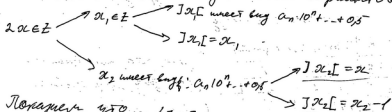 ]x₁[ имеет вид aₙ·10ⁿ+...+0,5
x₁∈Z
2x∈Z
]x₁[ = x₁
x₂ имеет вид: aₙ·10ⁿ+...+0,5
]x₂[ = x
]x₂[ = x₂-
Покажем, что